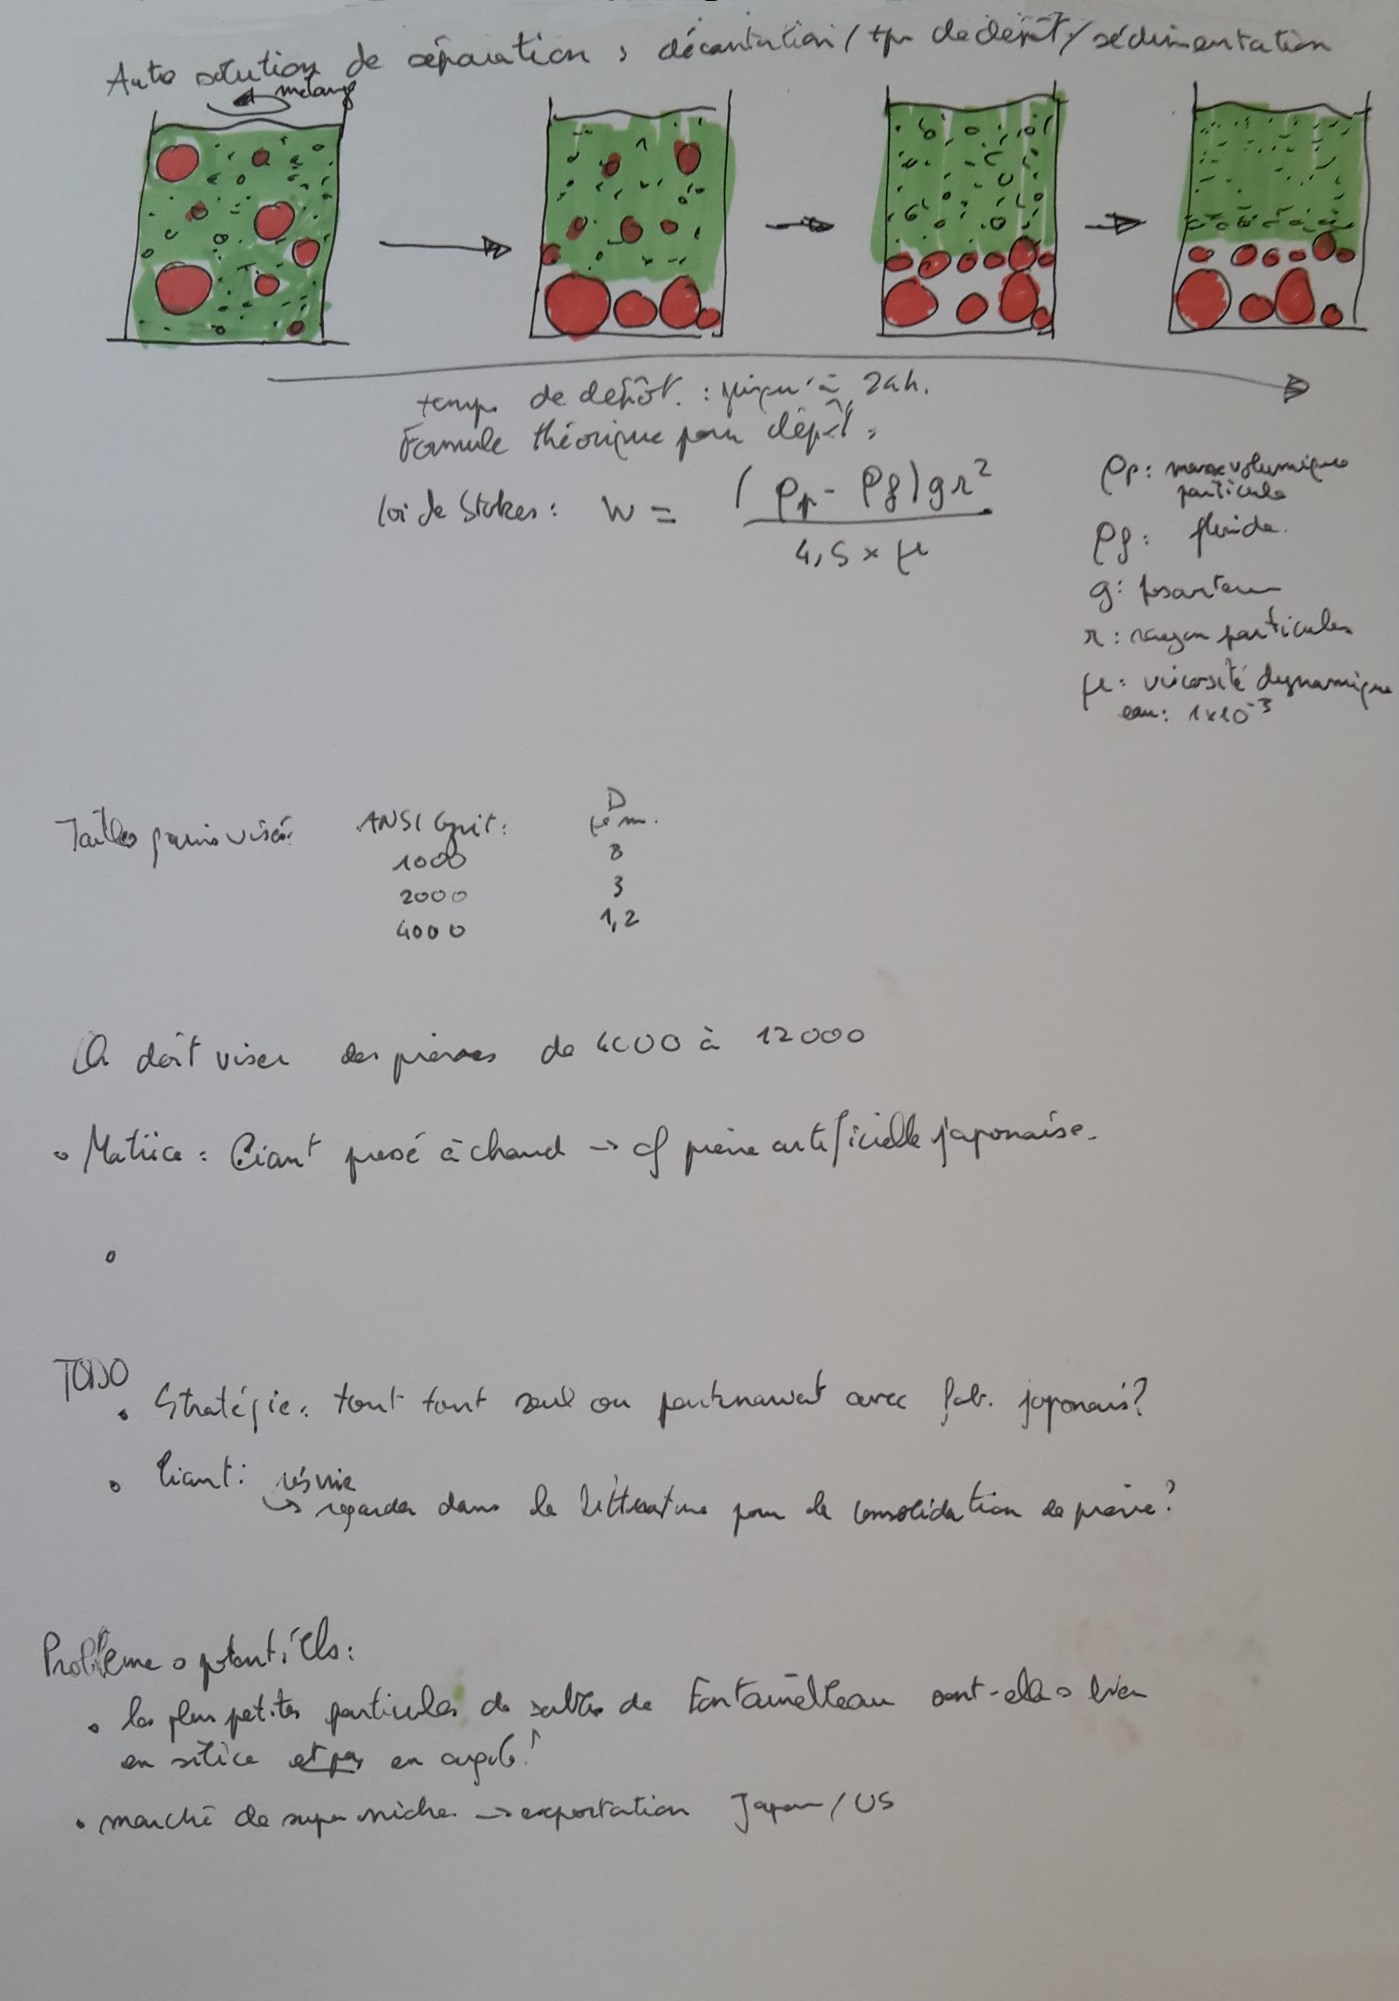 Autre solution de séparation : décantation / tps de dépôt / sédimentation
mélange
temps de dépôt : jusqu'à 24h.
Formule théorique pour dépôt :
loi de Stokes : W = (ρp - ρf) g r²
4,5 × µ
ρp : masse volumique
particule
ρf : fluide.
g : pesanteur
r : rayon particules
µ : viscosité dynamique
eau : 1x10⁻³
Tailles grains visés: ANSI Grit: D
µm.
1000 8
2000 3
4000 1,2
On doit viser des pierres de 4000 à 12000
• Matrice : liant pressé à chaud → cf pierre artificielle japonaise.
•
TODO
• Stratégie : tout tout seul ou partenariat avec fab. japonais ?
• liant : résine
↳ regarder dans la littérature pour la consolidation de pierre ?
Problèmes potentiels :
• les plus petites particules de sables de Fontainebleau sont-elles bien
en silice et pas en argile !
• marché de super niche → exportation Japon / US